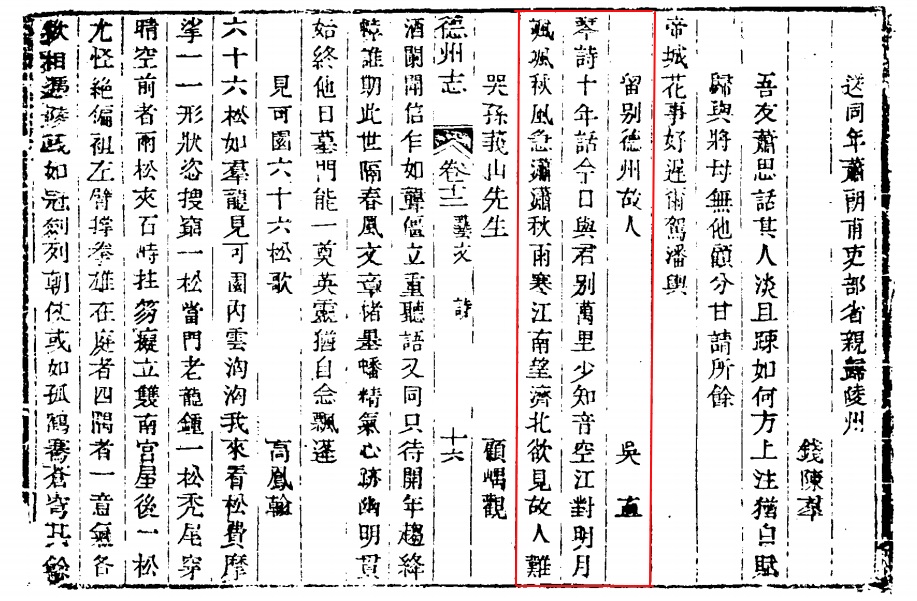 送同年蕭朝甫吏部省親歸陵州
錢陳羣
吾友蕭思話其人淡且踈如何方上注猶自賦
歸與將母無他顧分甘請所餘
帝城花事好遲爾駕潘輿
留别德州故人
吳直
琴詩十年話今日與君别萬里少知音空江對明月
颯颯秋風急瀟瀟秋雨寒江南望濟北欲見故人難
哭孫莪山先生
顧嵎觀
德州志
卷十二
藝文
詩
十六
酒闌開信乍如聾僵立重聽語又同只待開年趨絳
帳誰期此世隔春風文章楮墨蟠精氣心跡幽明貫
始終他日墓門能一奠英靈猶自念飄蓬
見可園六十六松歌
高鳳翰
六十六松如羣龍見可園内雲洶洶我來看松費摩
挲一一形狀恣搜窮一松當門老龍鍾一松秃尾穿
晴空前者兩松夾石峙拄笏癡立雙南宫屋後一松
尤怪絶偏袒左臂撑拳雄在庭者四閒者一意氣各
欲相
如冠劍列朝仗或如孤鶴騫蒼穹其餘